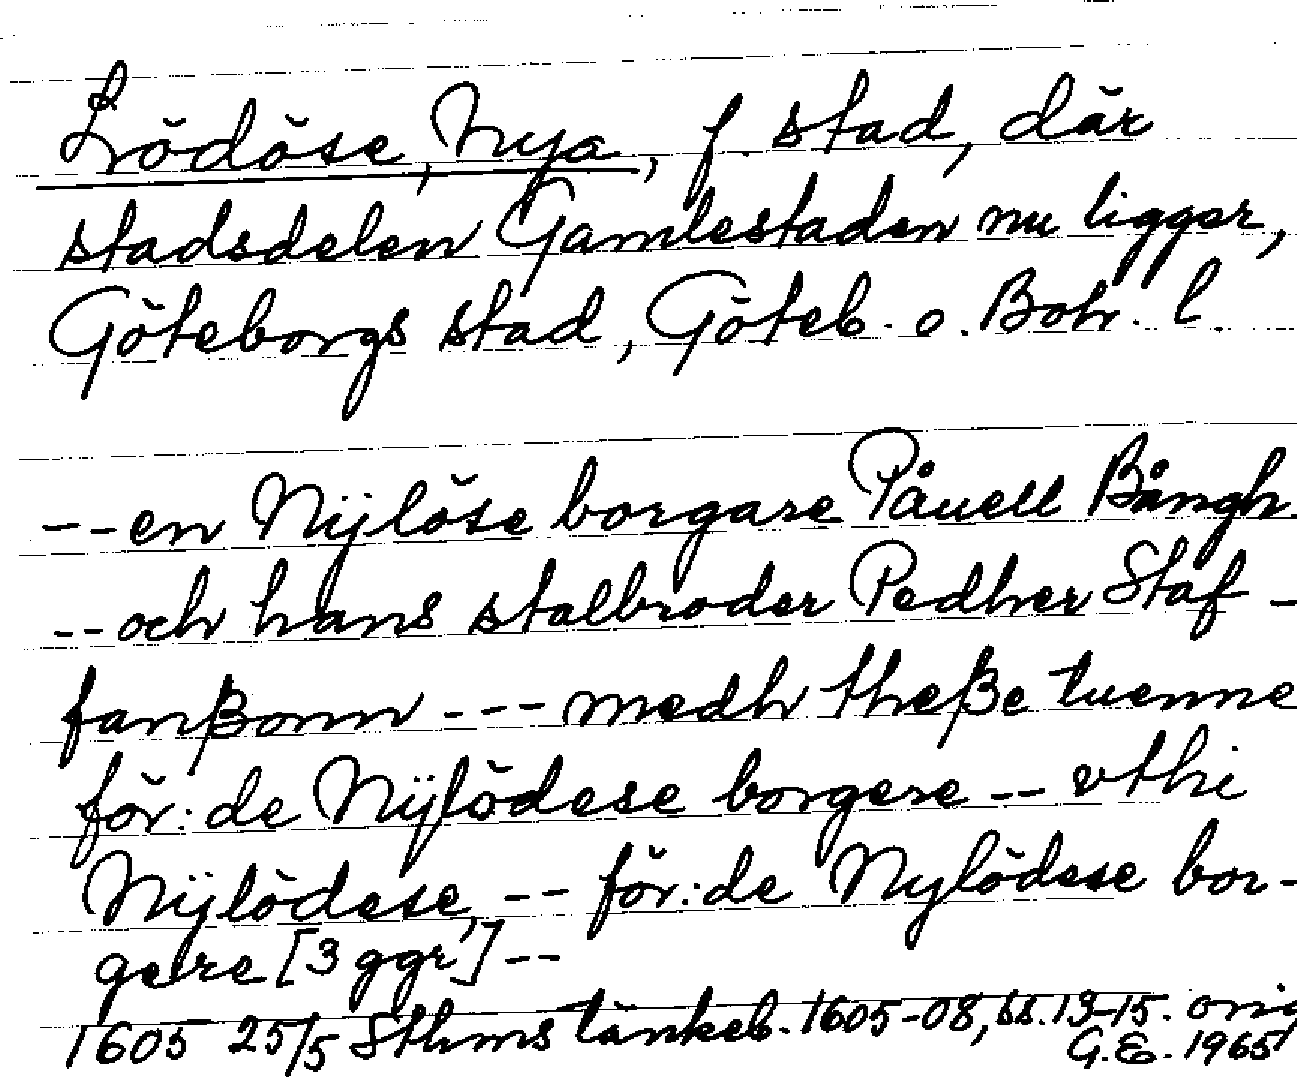 Lödöse, Nya, f. stad, där
stadsdelen Gamlestaden nu ligger,
Göteborgs stad, Göteb. o. Boh. l.
--en Nÿlöse borgare Påuell Bångh
--och hans stalbroder Pedher Staf-
fanßonn --- medh theße tuenne
för:de Nÿlödese borgere -- vthi
Nÿlödese, -- för:de Nylödese bor-
gere [3 ggr] --
1605 25/5 Sthms tänkeb. 1605-08, ss. 13-15. orig
G.E. 1965